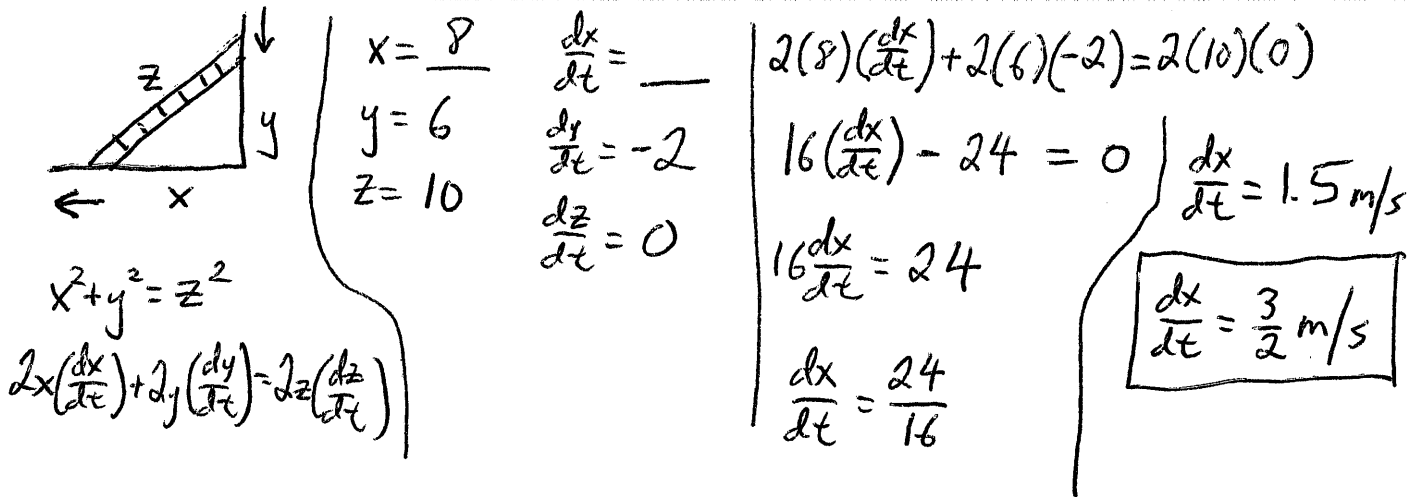 z
y
x
x²+y²=z²
2x(dx/dt)+2y(dy/dt)=2z(dz/dt)
x= 8
y= 6
z= 10
dx/dt= __
dy/dt=-2
dz/dt= 0
2(8)(dx/dt)+2(6)(-2)=2(10)(0)
16(dx/dt) - 24 = 0
16dx/dt = 24
dx/dt = 24/16
dx/dt = 1.5 m/s
dx/dt = 3/2 m/s